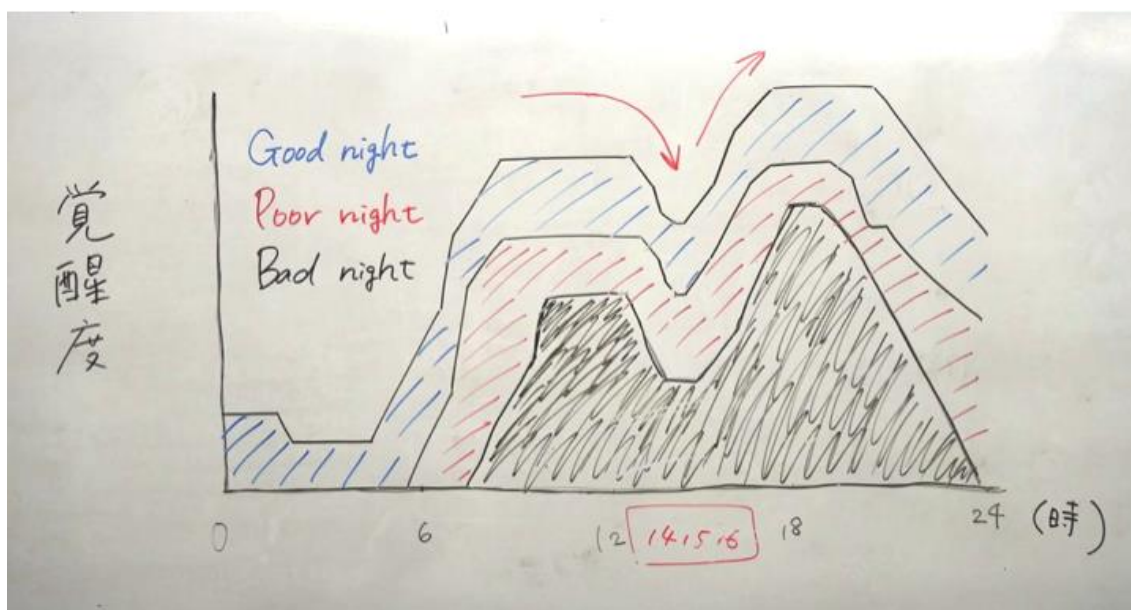 Good night
Poor night
Bad night
覚醒度
0 6 12 14.15.16 18 24 (時)